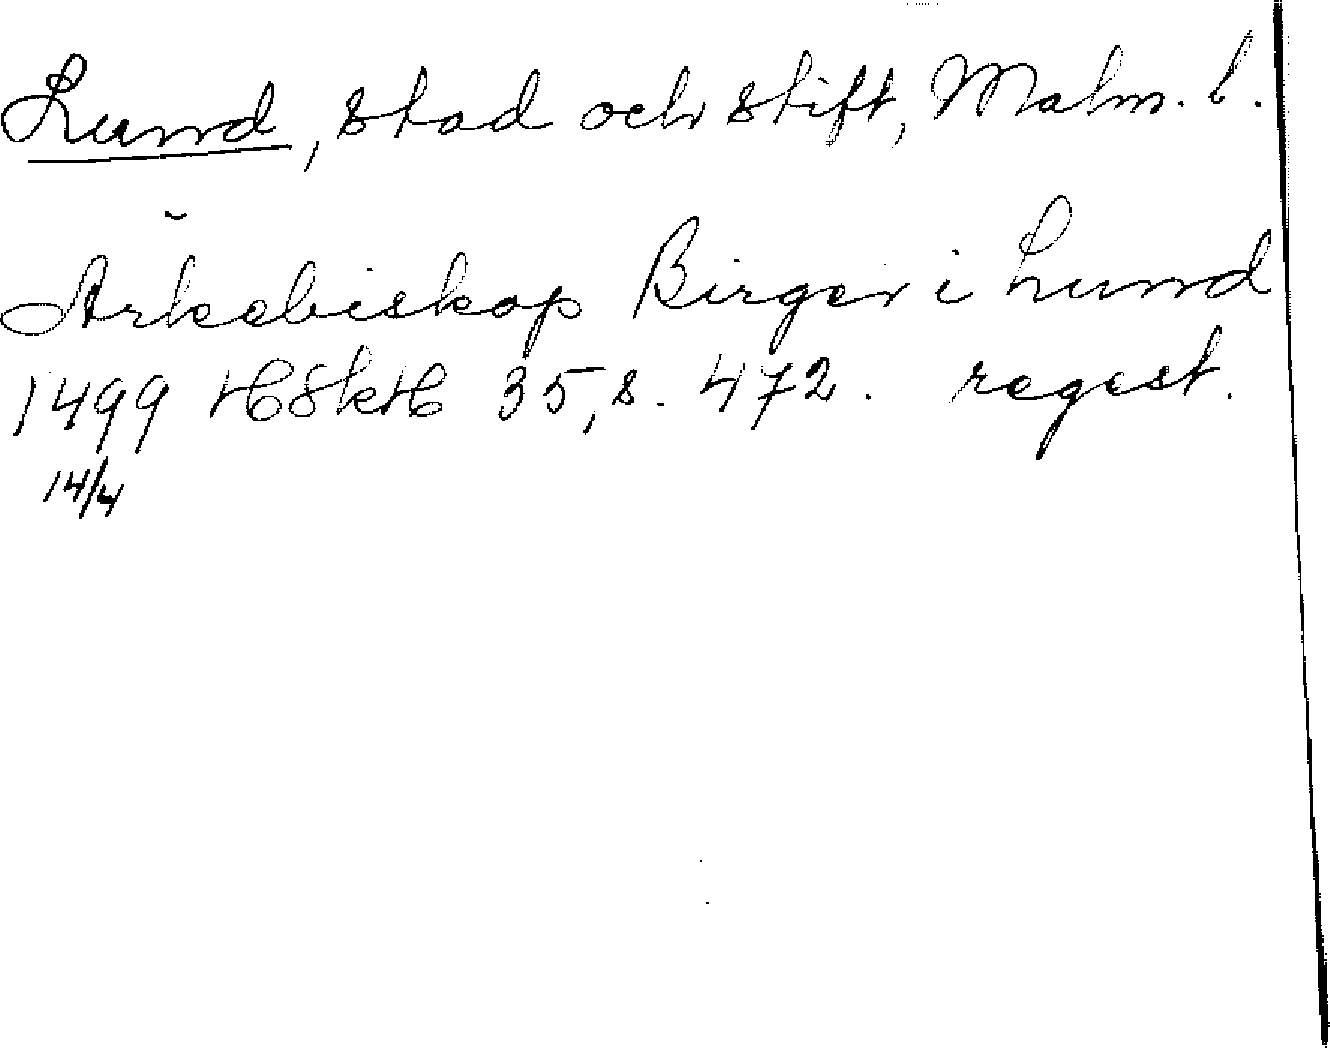 Lund, stad och stift, Malm. l.
Ärkebiskop Birger i Lund
1499 HSkH 35, s. 472. regest.
14/4